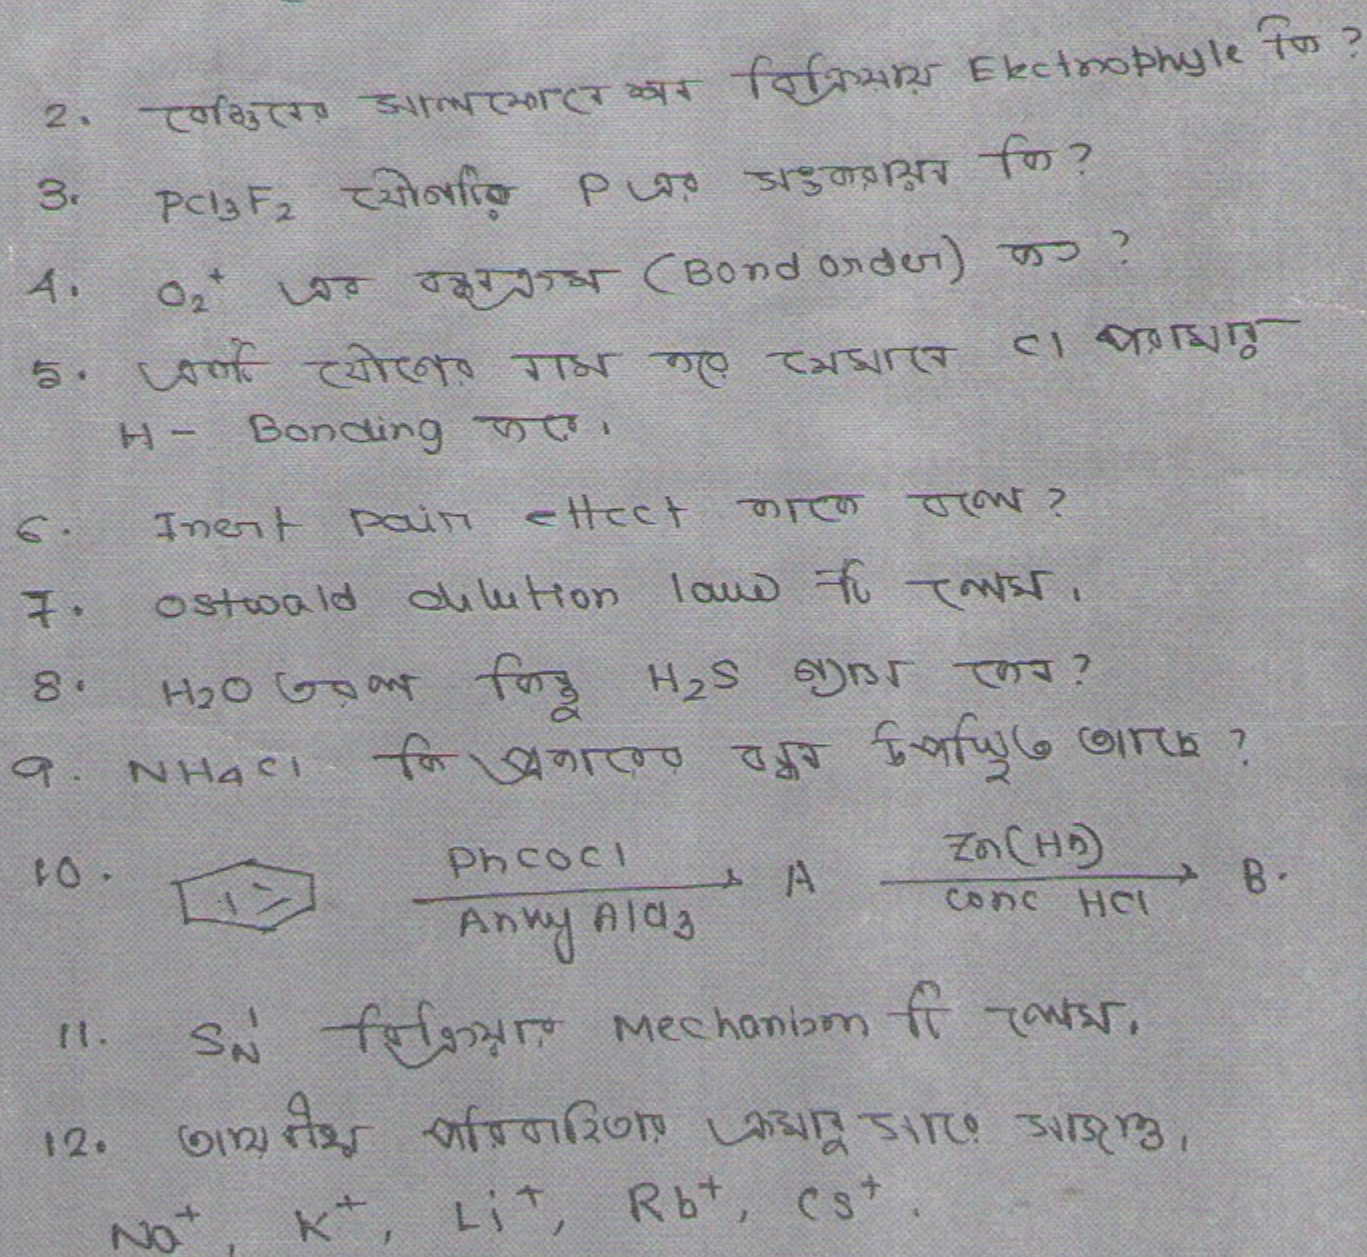 2. বেঞ্জিনের সালফোনেশন বিক্রিয়ায় Electrophyle কি?
3. PCl3F2 যৌগটির P এর সঙ্করায়ন কি?
4. O2+ এর বন্ধনক্রম (Bond order) কত?
5. একটি যৌগের নাম কর যেখানে Cl পরমাণু
H - Bonding করে।
6. Inert pair effect কাকে বলে?
7. Ostwald dilution law টি লেখ।
8. H2O তরল কিন্তু H2S গ্যাস কেন?
9. NH4Cl কি প্রকারের বন্ধন উপস্থিত আছে?
10. PhCOCl Anhy AlCl3 → A Zn(Hg) conc HCl → B.
11. SN1 বিক্রিয়ার Mechanism টি লেখ।
12. আয়নীয় পরিবাহিতার ক্রমানুসারে সাজাও।
Na+, K+, Li+, Rb+, Cs+.